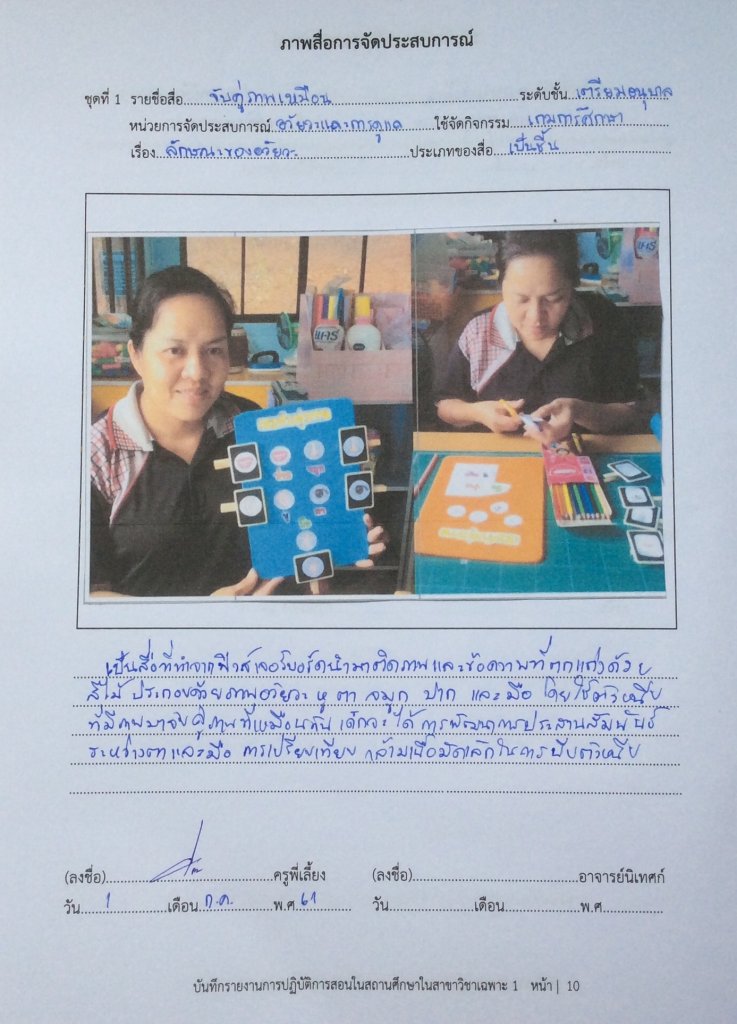 ภาพสื่อการจัดประสบการณ์
ชุดที่ 1 รายชื่อสื่อ จับคู่ภาพเหมือน ระดับชั้น เตรียมอนุบาล
หน่วยการจัดประสบการณ์ อวัยวะและการดูแล ใช้จัดกิจกรรม เกมการศึกษา
เรื่อง ลักษณะของอวัยวะ ประเภทของสื่อ เป็นชิ้น
แคร์
เป็นสื่อที่ทำจากฟิวส์เจอร์บอร์ดนำมาติดภาพและข้อความที่ตกแต่งด้วย
สีไม้ ประกอบด้วยภาพอวัยวะ หู ตา จมูก ปาก และมือ โดยใช้ตัวหนีบ
ที่มีภาพมาจับคู่ภาพที่เหมือนกัน เด็กจะได้ การพัฒนาการประสานสัมพันธ์
ระหว่างตาและมือ การเปรียบเทียบ กล้ามเนื้อมัดเล็กในการบีบตัวหนีบ
(ลงชื่อ) ครูพี่เลี้ยง (ลงชื่อ) อาจารย์นิเทศก์
วัน 1 เดือน ก.ค. พ.ศ 61 วัน เดือน พ.ศ
บันทึกรายงานการปฏิบัติการสอนในสถานศึกษาในสาขาวิชาเฉพาะ 1 หน้า | 10